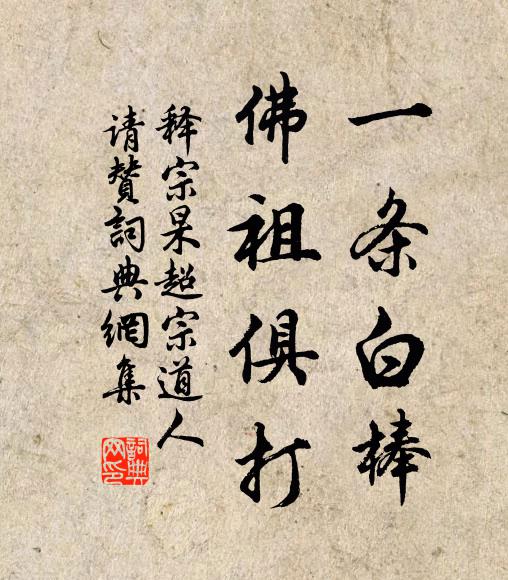 一条白棒
佛祖俱打
释宗杲超宗道人
请赞詞典網集
詞典
网印